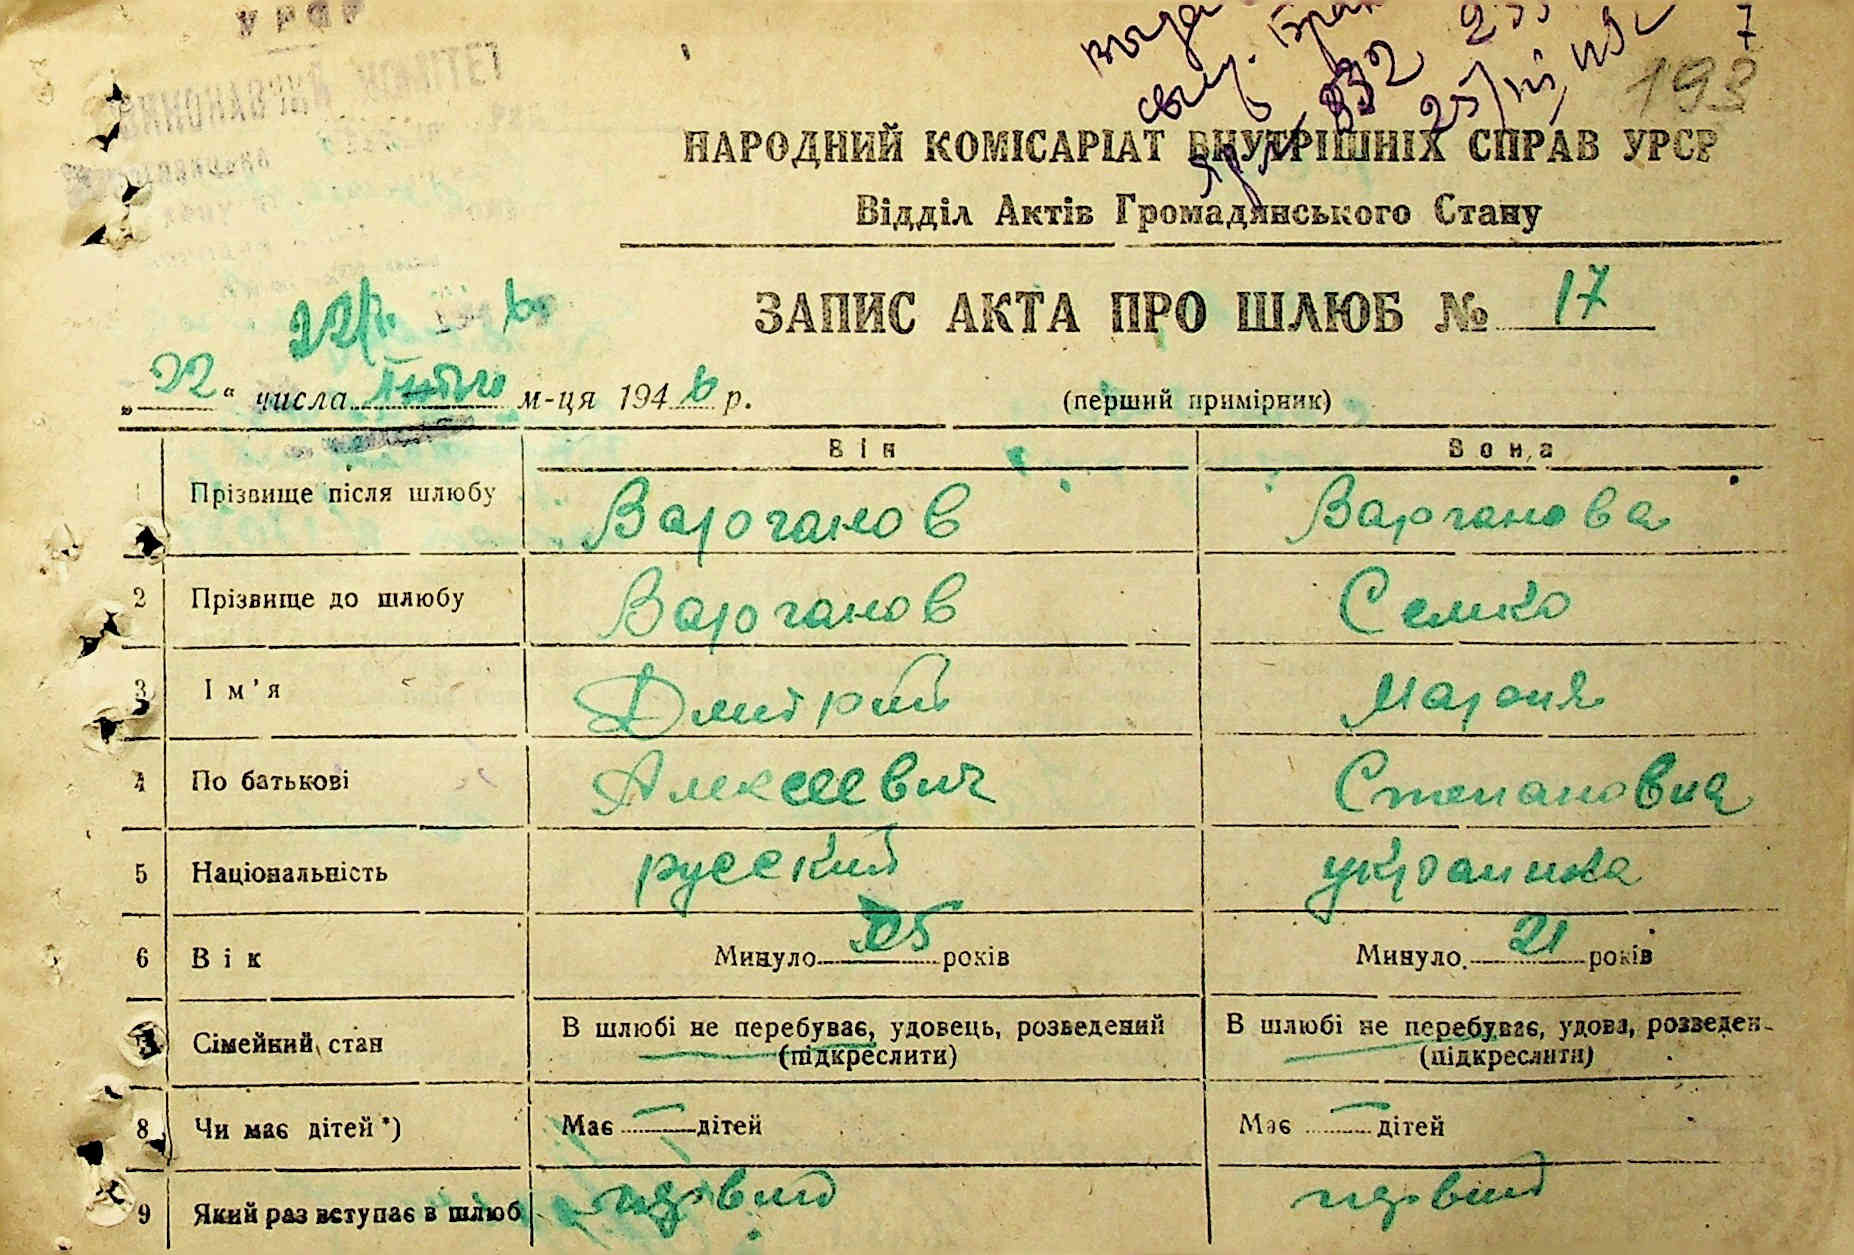 УРСР
7
193
НАРОДНИЙ КОМІСАРІАТ ВНУТРІШНІХ СПРАВ УРСР
Відділ Актів Громадянського Стану
ЗАПИС АКТА ПРО ШЛЮБ № 17
„22“ числа Лютого м-ця 1946 р.
(перший примірник)
Він Вона
1 Прізвище після шлюбу Варганов Варганова
2 Прізвище до шлюбу Варганов Семко
3 Ім'я Дмитрий Мария
4 По батькові Алексеевич Степановна
5 Національність русский украинка
6 Вік Минуло 25 років Минуло 21 років
7 Сімейний стан В шлюбі не перебуває, удовець, розведений В шлюбі не перебуває, удова, розведен
(підкреслити) (підкреслити)
8 Чи має дітей*) Має — дітей Має — дітей
9 Який раз вступає в шлюб первий первий